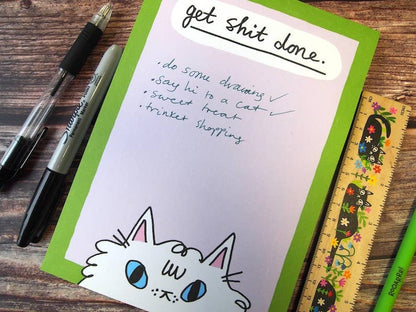 get shit done.
• do some drawing ✓
• say hi to a cat ✓
• sweet treat
• trinket shopping
Sharpie